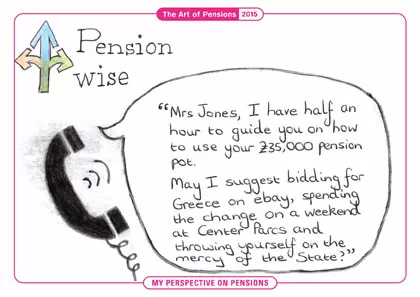 The Art of Pensions 2015
Pension
wise
“Mrs Jones, I have half an
hour to guide you on how
to use your £35,000 pension
pot.
May I suggest bidding for
Greece on ebay, spending
the change on a weekend
at Center Parcs and
throwing yourself on the
mercy of the State?”
MY PERSPECTIVE ON PENSIONS